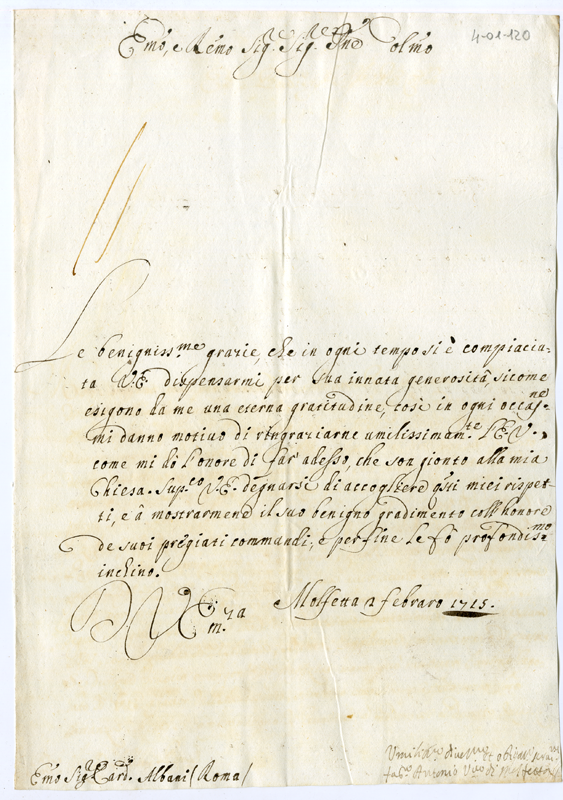 4-01-120
Emo, e Remo Sig.r Sig.r Pne Colmo
Le beniguiss.me grazie, che in ogni tempo si è compiaciu-
ta V.E. dispensarmi per sua innata generosità, sicome
esigono da me una eterna gratitudine, così in ogni occas.ne
mi danno motivo di ringraziarne umilissimam.te l'E.V.,
come mi dò l'onore di far' adesso, che son gionto alla mia
Chiesa. Sup.co V.E. degnarsi di accogliere q'sti miei rispet-
ti, e à mostrarmene il suo benigno gradimento coll'honore
de suoi pregiati commandi; e per fine le fò profondis.mo
inchino.
D V.E. m.ra
Molfetta 2 febraro 1715.
Emo Sig.r Card. Albani (Roma)
Umilis.mo divet.mo et oblig.
fab.o Antonio V.vo di Molfetta